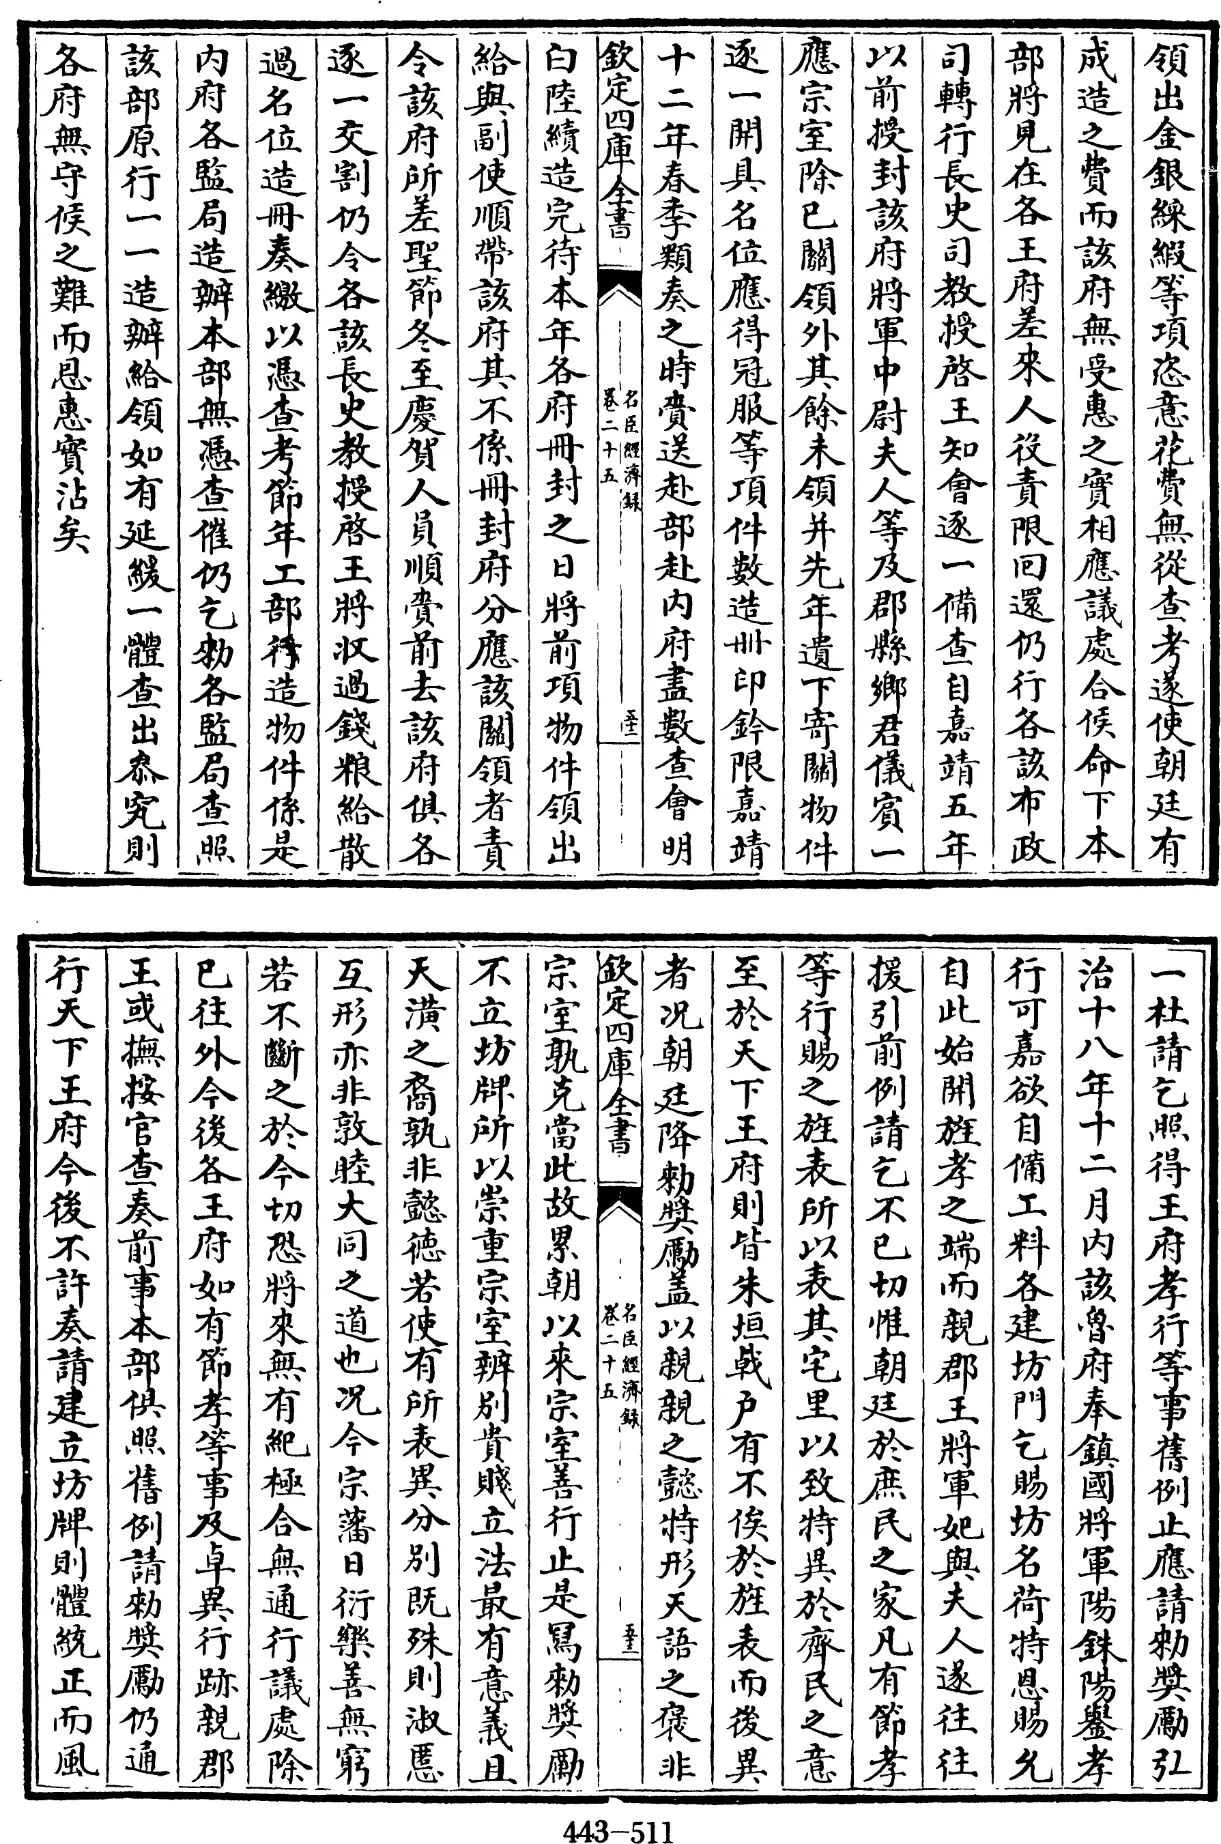 領出金銀綵緞等項恣意花費無從查考遂使朝廷有
成造之費而該府無受惠之實相應議處合候命下本
部將見在各王府差來人役責限回還仍行各該布政
司轉行長史司教授啓王知會逐一備查自嘉靖五年
以前授封該府將軍中尉夫人等及郡縣鄉君儀賓一
應宗室除已關領外其餘未領并先年遺下寄關物件
逐一開具名位應得冠服等項件數造冊印鈐限嘉靖
十二年春季類奏之時賫送赴部赴内府盡數查會明
欽定四庫全書
名臣經濟録
卷二十五
五十二
白陸續造完待本年各府冊封之日將前項物件領出
給與副使順帶該府其不係冊封府分應該關領者責
令該府所差聖節冬至慶賀人員順賫前去該府俱各
逐一交割仍令各該長史教授啓王將收過錢粮給散
過名位造冊奏繳以憑查考節年工部行造物件係是
内府各監局造辦本部無憑查催仍乞勅各監局查照
該部原行一一造辦給領如有延緩一體查出叅究則
各府無守候之難而恩惠實沾矣
一杜請乞照得王府孝行等事舊例止應請勅奬勵引
治十八年十二月内該魯府奉鎮國將軍陽銖陽鑾孝
行可嘉欲自備工料各建坊門乞賜坊名荷特恩賜允
自此始開旌孝之端而親郡王將軍妃與夫人遂往往
援引前例請乞不已切惟朝廷於庶民之家凡有節孝
等行賜之旌表所以表其宅里以致特異於齊民之意
至於天下王府則皆朱垣戟户有不俟於旌表而後異
者况朝廷降勅奬勵盖以親親之懿特形天語之褒非
欽定四庫全書
名臣經濟録
卷二十五
五十三
宗室孰克當此故累朝以來宗室善行止是寫勅奬勵
不立坊牌所以崇重宗室辨别貴賤立法最有意義且
天潢之裔孰非懿德若使有所表異分别既殊則淑慝
互形亦非敦睦大同之道也况今宗藩日衍樂善無窮
若不斷之於今切恐將來無有紀極合無通行議處除
已往外今後各王府如有節孝等事及卓異行跡親郡
王或撫按官查奏前事本部俱照舊例請勅奬勵仍通
行天下王府今後不許奏請建立坊牌則體統正而風
443-511